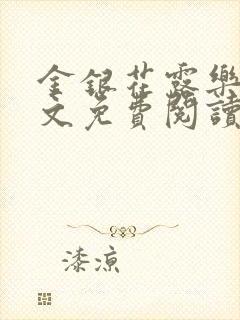 金銀花露樂
文免費閱讀
漆涼